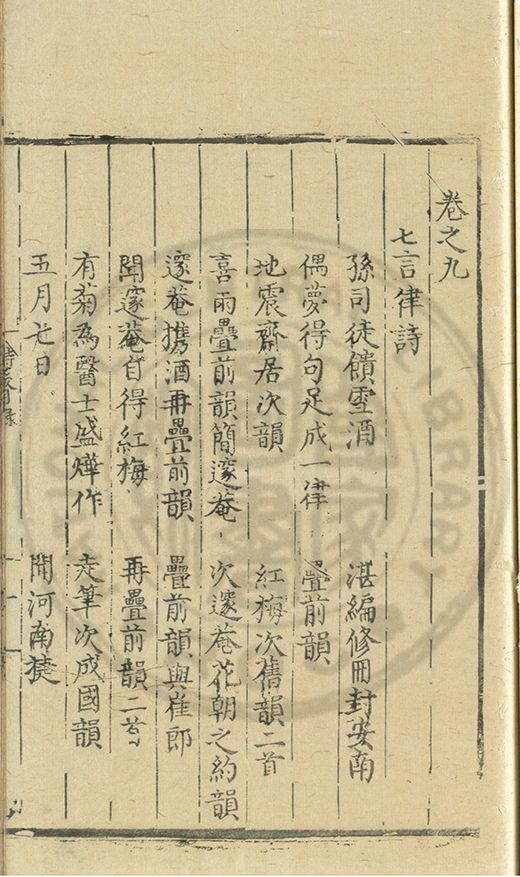 卷之九
七言律詩
孫司徒饋雪酒 湛編修冊封安南
偶夢得句足成一律 疊前韻
地震齋居次韻 紅梅次舊韻二首
喜雨疊前韻簡邃菴 次邃菴花朝之約韻
邃菴攜酒再疊前韻 疊前韻與崔郎
聞邃菴自得紅梅 再疊前韻二首
有菊為醫士盛燁作 走筆次成國韻
五月七日 聞河南捷